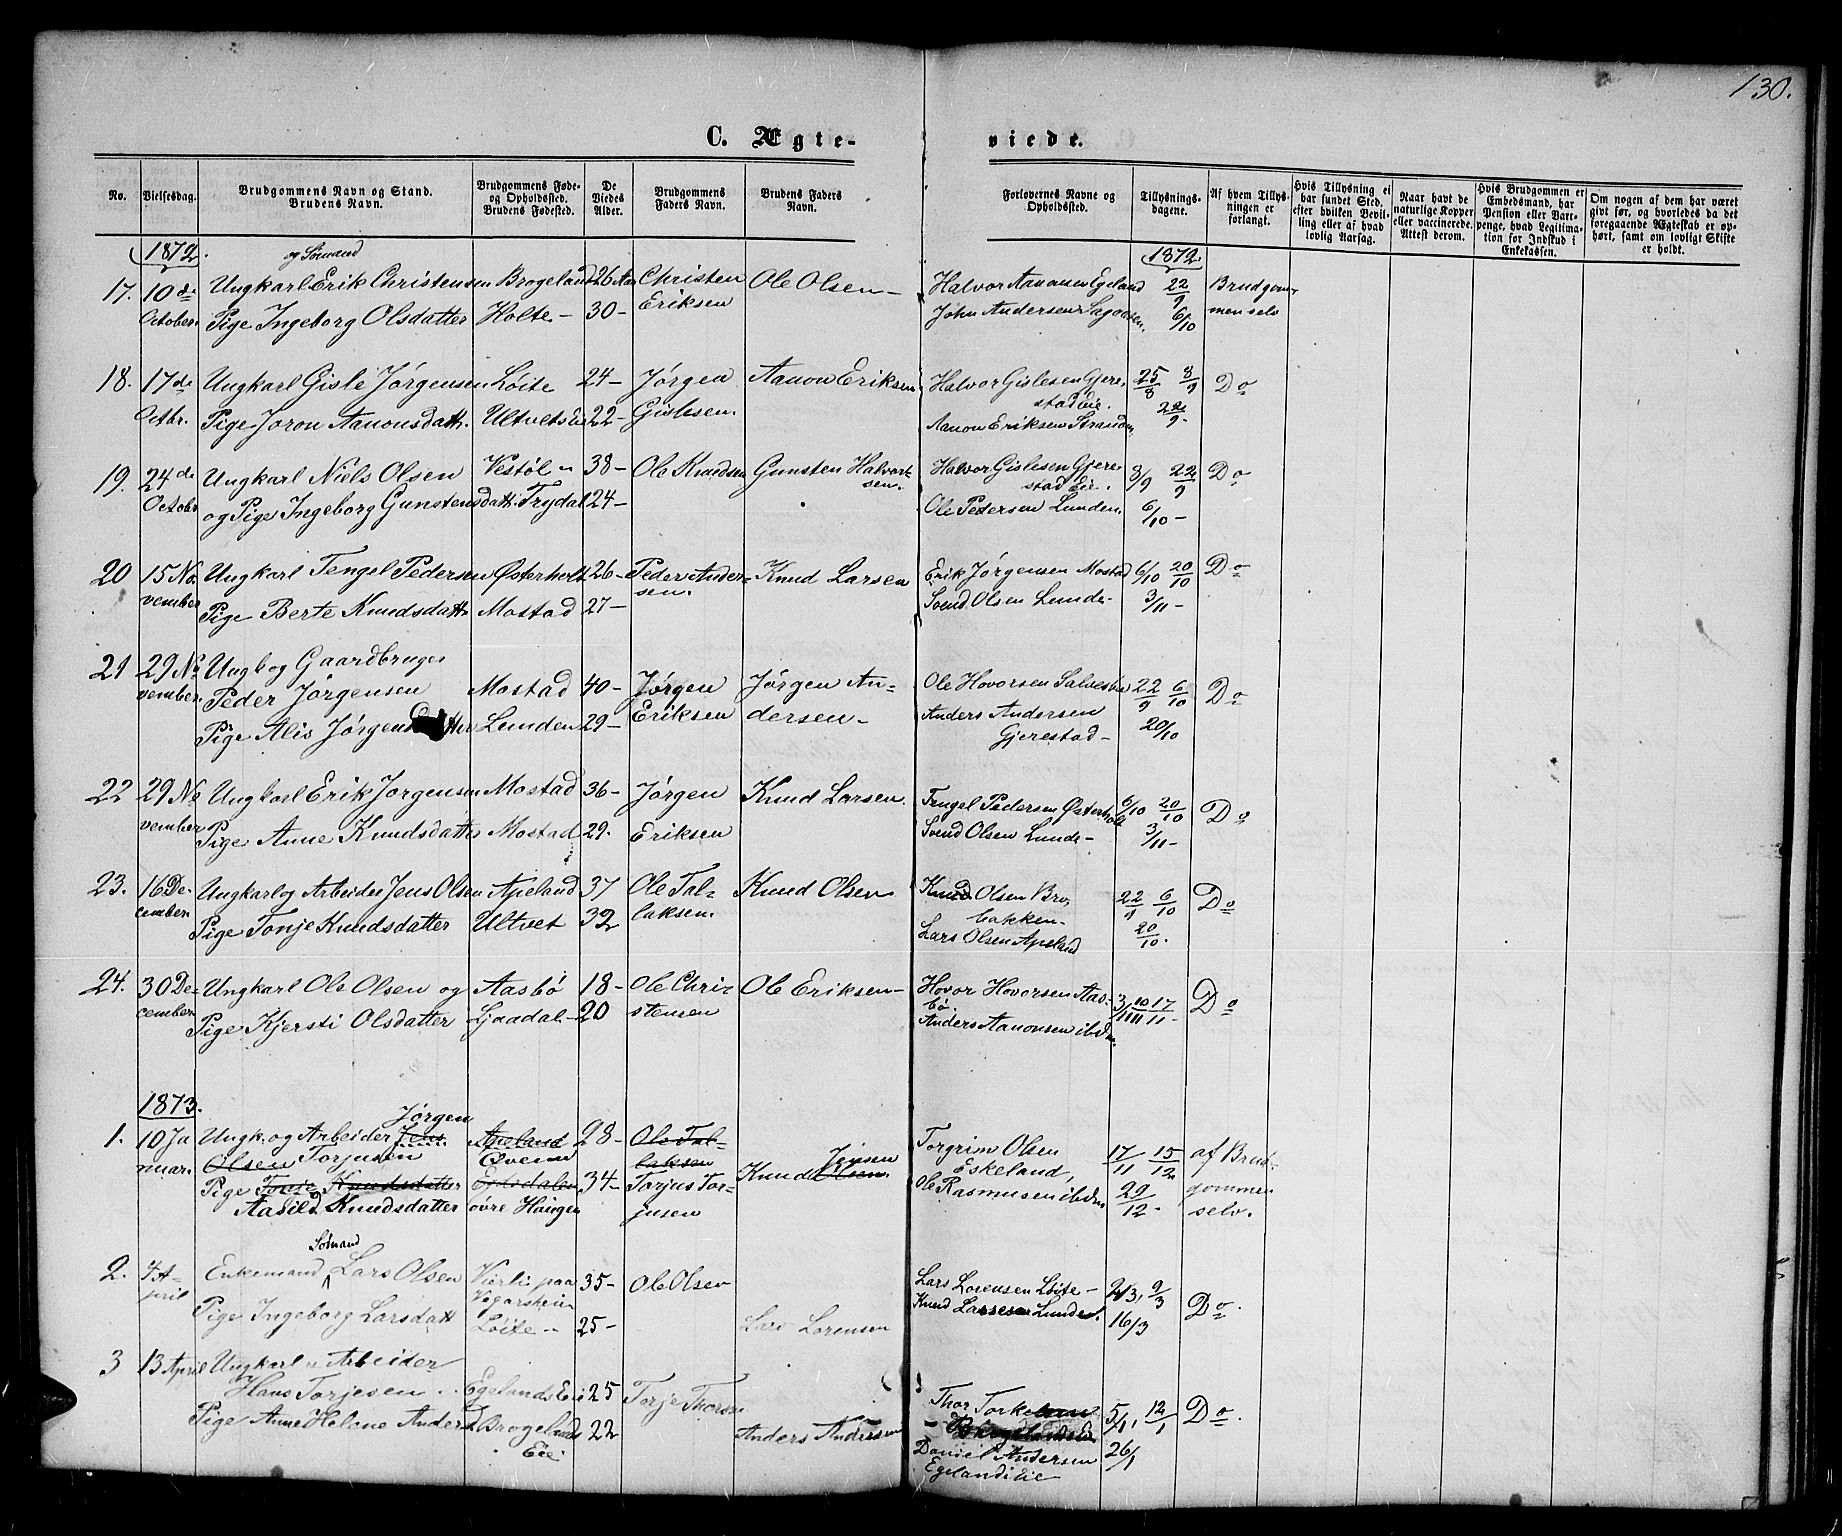 130.
C. Ægte- viede.
No. Vielsesdag. Brudgommens Navn og Stand. Brudens Navn. Brudgommens Føde- og Opholdssted. Brudens Fødested. De Viedes Alder. Brudgommens Faders Navn. Brudens Faders Navn. Forlovernes Navne og Opholdssted. Tillysnings-dagene. Af hvem Tillysningen er forlangt. Hvis Tillysning ei har fundet Sted, efter hvilken Bevilling eller af hvad lovlig Aarsag. Naar havt de naturlige Kopper eller vaccinerede. Attest derom. Hvis Brudgommen er Embedsmand, har Pension eller Vartpenge, hvad Legitimation for Indskud i Enkekassen. Om nogen af dem har været givt før, og hvorledes da det foregaaende Ægteskab er ophørt, samt om lovligt Skifte er holdt.
1872. og Sömand 1872.
17. 10de Ungkarl Erik Christensen Brogeland 26 Aar Christen Ole Olsen- Halvor Aanonsen Egeland 22/9 Brudgom-
October. Pige Ingeborg Olsdatter Holte- 30- Eriksen John Andersen 6/10 men selv
18. 17de Ungkarl Gisle Jørgensen Löite 24- Jørgen Aanon Eriksen Halvor Gislesen Gjere- 25/8 8/9 Do
stad eie. 22/9-
Octbr. Pige Joron Aanonsdatt. Ultvets Eie 22- Gislesen. Aanon Eriksen
19. 24de Ungkarl Niels Olsen Vestöl- 38- Ole Knudsen Gunsten Halvor- Halvor Gislesen Gjere- 8/9 22/9 Do
sen. stad Eie.
October og Pige Ingeborg Gunstensdatt. Trydal 24- Ole Pedersen Lunden. 6/10-
20 15 No- Ungkarl Tengel Pedersen Østerholt 26- Peder Ander- Knud Larsen Erik Jørgensen Mostad 6/10 20/10 Do
vember Pige Berte Knudsdatt. Mostad 27- sen. Svend Olsen Lunde- 3/11-
21 29 No- Ungk og Gaardbruger
vember. Peder Jörgensen Mostad 40- Jørgen Jørgen An- Ole Hovorsen 22/9 6/10 Do
Pige Alis Lunden 29- Eriksen dersen- Anders Andersen
Gjerestad- 20/10
22 29 No Ungkarl Erik Jorgensen Mostad 36- Jørgen Knud Larsen. Tengel Pedersen Østerholt 6/10 20/10 Do
vember Pige Anne Knudsdatter Mostad 29. Eriksen Svend Olsen Lunde- 3/11-
23. 16 De- Ungkarl og Arbeider Jens Olsen Apeland 37 Ole Tal- Knud Olsen Knud Olsen Bro- 22/9 6/10 Do
cember. bakken-
Pige Tonje Knudsdatter Ultvet 32 laksen. Lars Olsen Apeland 20/10.
24. 30 De- Ungkarl Ole Olsen og Aasbö 18- Ole Chri- Ole Eriksen- Hovor Hovorsen Aas- 3/11 10/11 17/11- Do
cember bö.
Pige Kjersti Olsdatter Ljaadal- 20 stensen Anders Aanonsen ibdm.
1873.
Jörgen
1. 10 Ja Ungk. og Arbeider Jens Apeland 28- Ole Tal- Torgrim Olsen 17/11 15/12 af Brud-
nuar. Olsen Torjusen laksen Jensen Eskeland,
Pige Tonje Knudsdatter 34- Torjus Tor- Knud Olsen. Ole Rasmusen ibdm 29/12- gommen
Aasild Knudsdatter övre Haugen jusen selv.
Sömand
2. 4 A- Enkemand Lars Olsen Vierli paa 35- Ole Olsen Lars Lorensen Löite- 2/3, 9/3
pril Vegarsheien Knud Larsesen Lunde. 16/3 Do.
Pige Ingeborg Larsdatt Löite- 25- Lars Lorensen
3 13 April Ungkarl Arbeider
Hans Torjesen Egelands Eie 25 Torje Thorsen Thor 5/1, 12/1 Do.
Pige Anne Helene Anders Brogelands 22 Anders Andersen
Eie Daniel Andersen 26/1